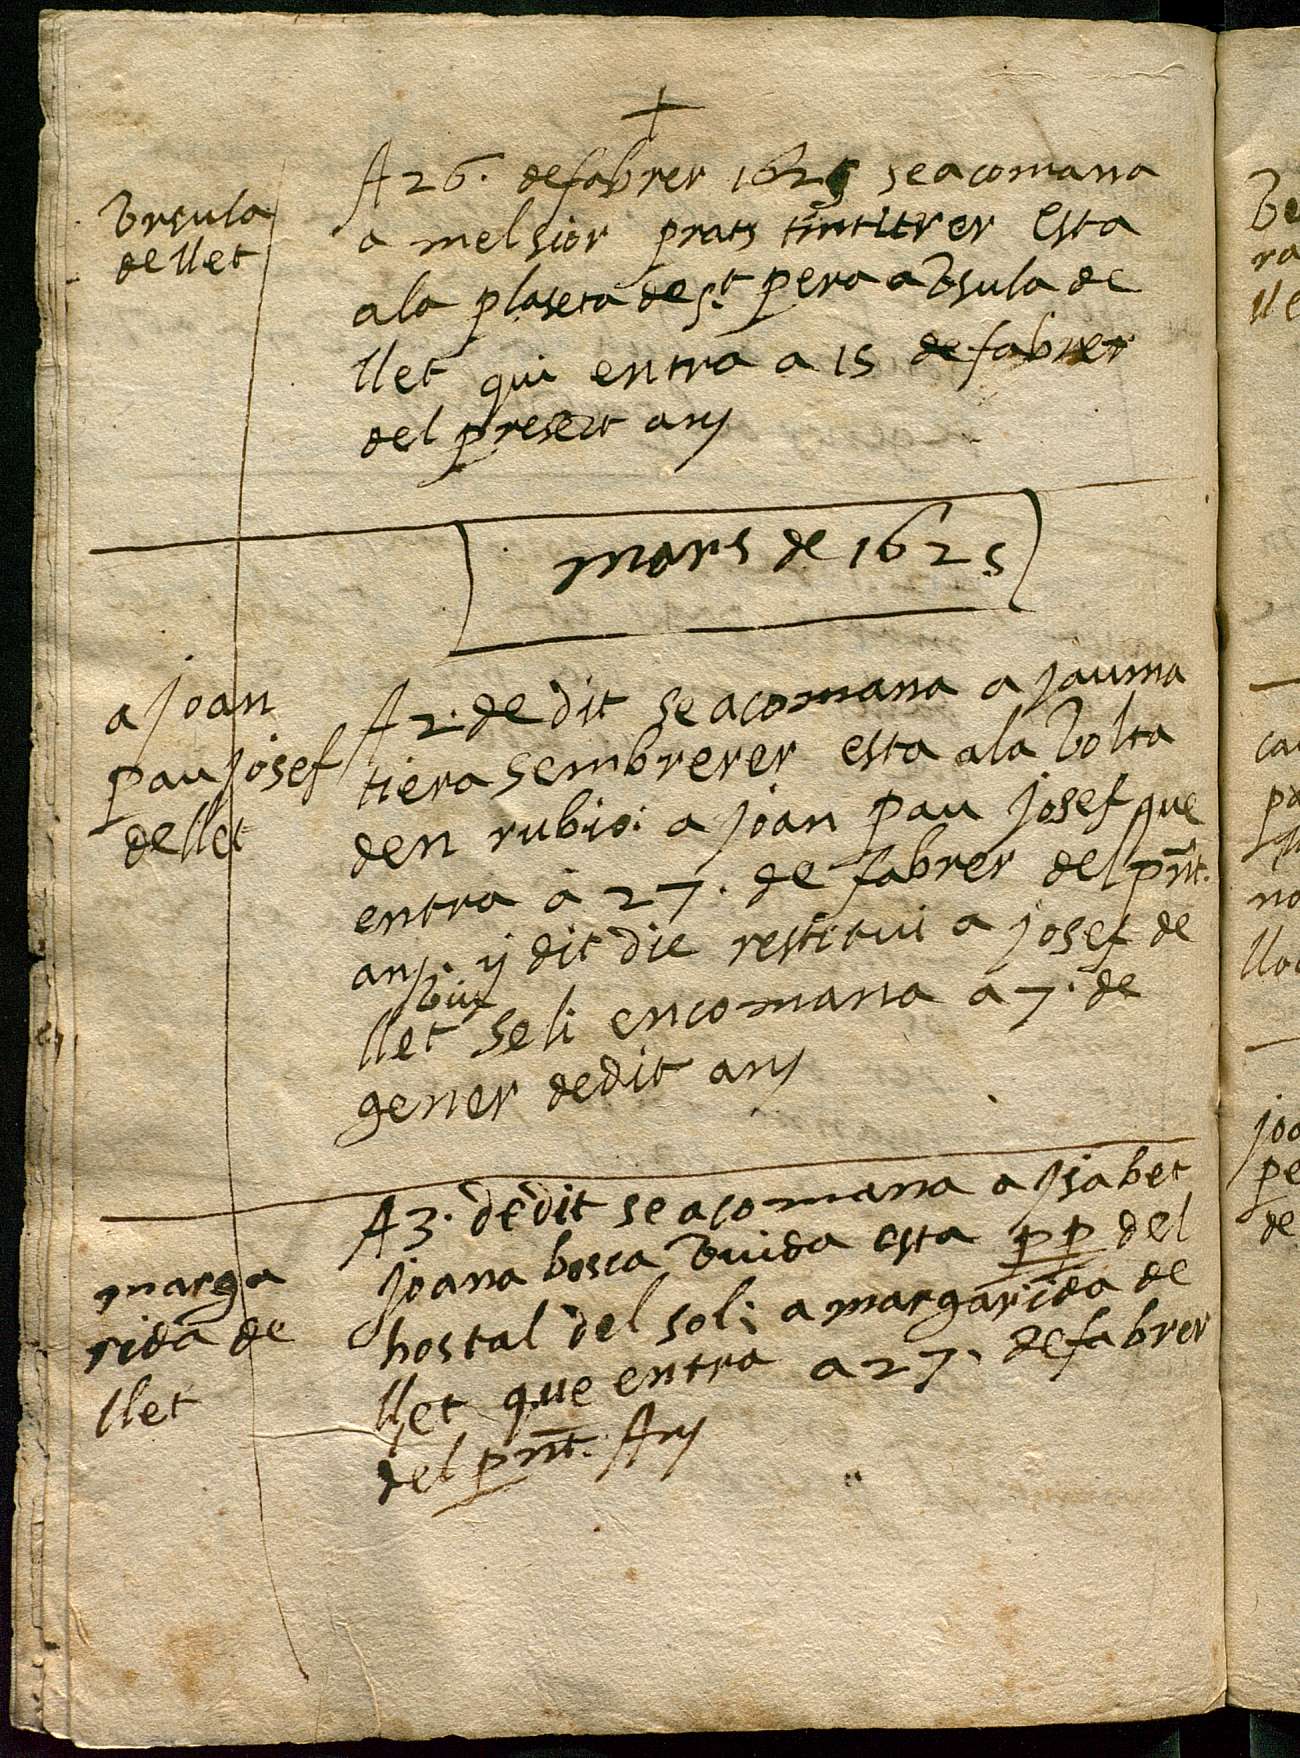 +
Vrsula
de llet
A 26. de fabrer 1625 se acomana
a melsior prats tintitrer esta
a la plaseta de st pera a Vsula de
llet qui entra a 15 de fabrer
del present any
mars de 1625
a joan
pau josef
de llet
A 2. de dit se acomana a jauma
tiera sembrerer esta a la Volta
den rubio: a joan pau josef que
entra a 27. de fabrer del pnt.
any. y dit die restitui a josef de
llet se li encomana a 7. de
gener de dit any
marga
rida de
llet
A 3. de dit se acomana a ysabet
joana bosca Viuida esta pp del
hostal del sol; a margarida de
llet que entra a 27. de fabrer
del pnt. Any
Be
ra
lle
pa
no
joa
pe
de